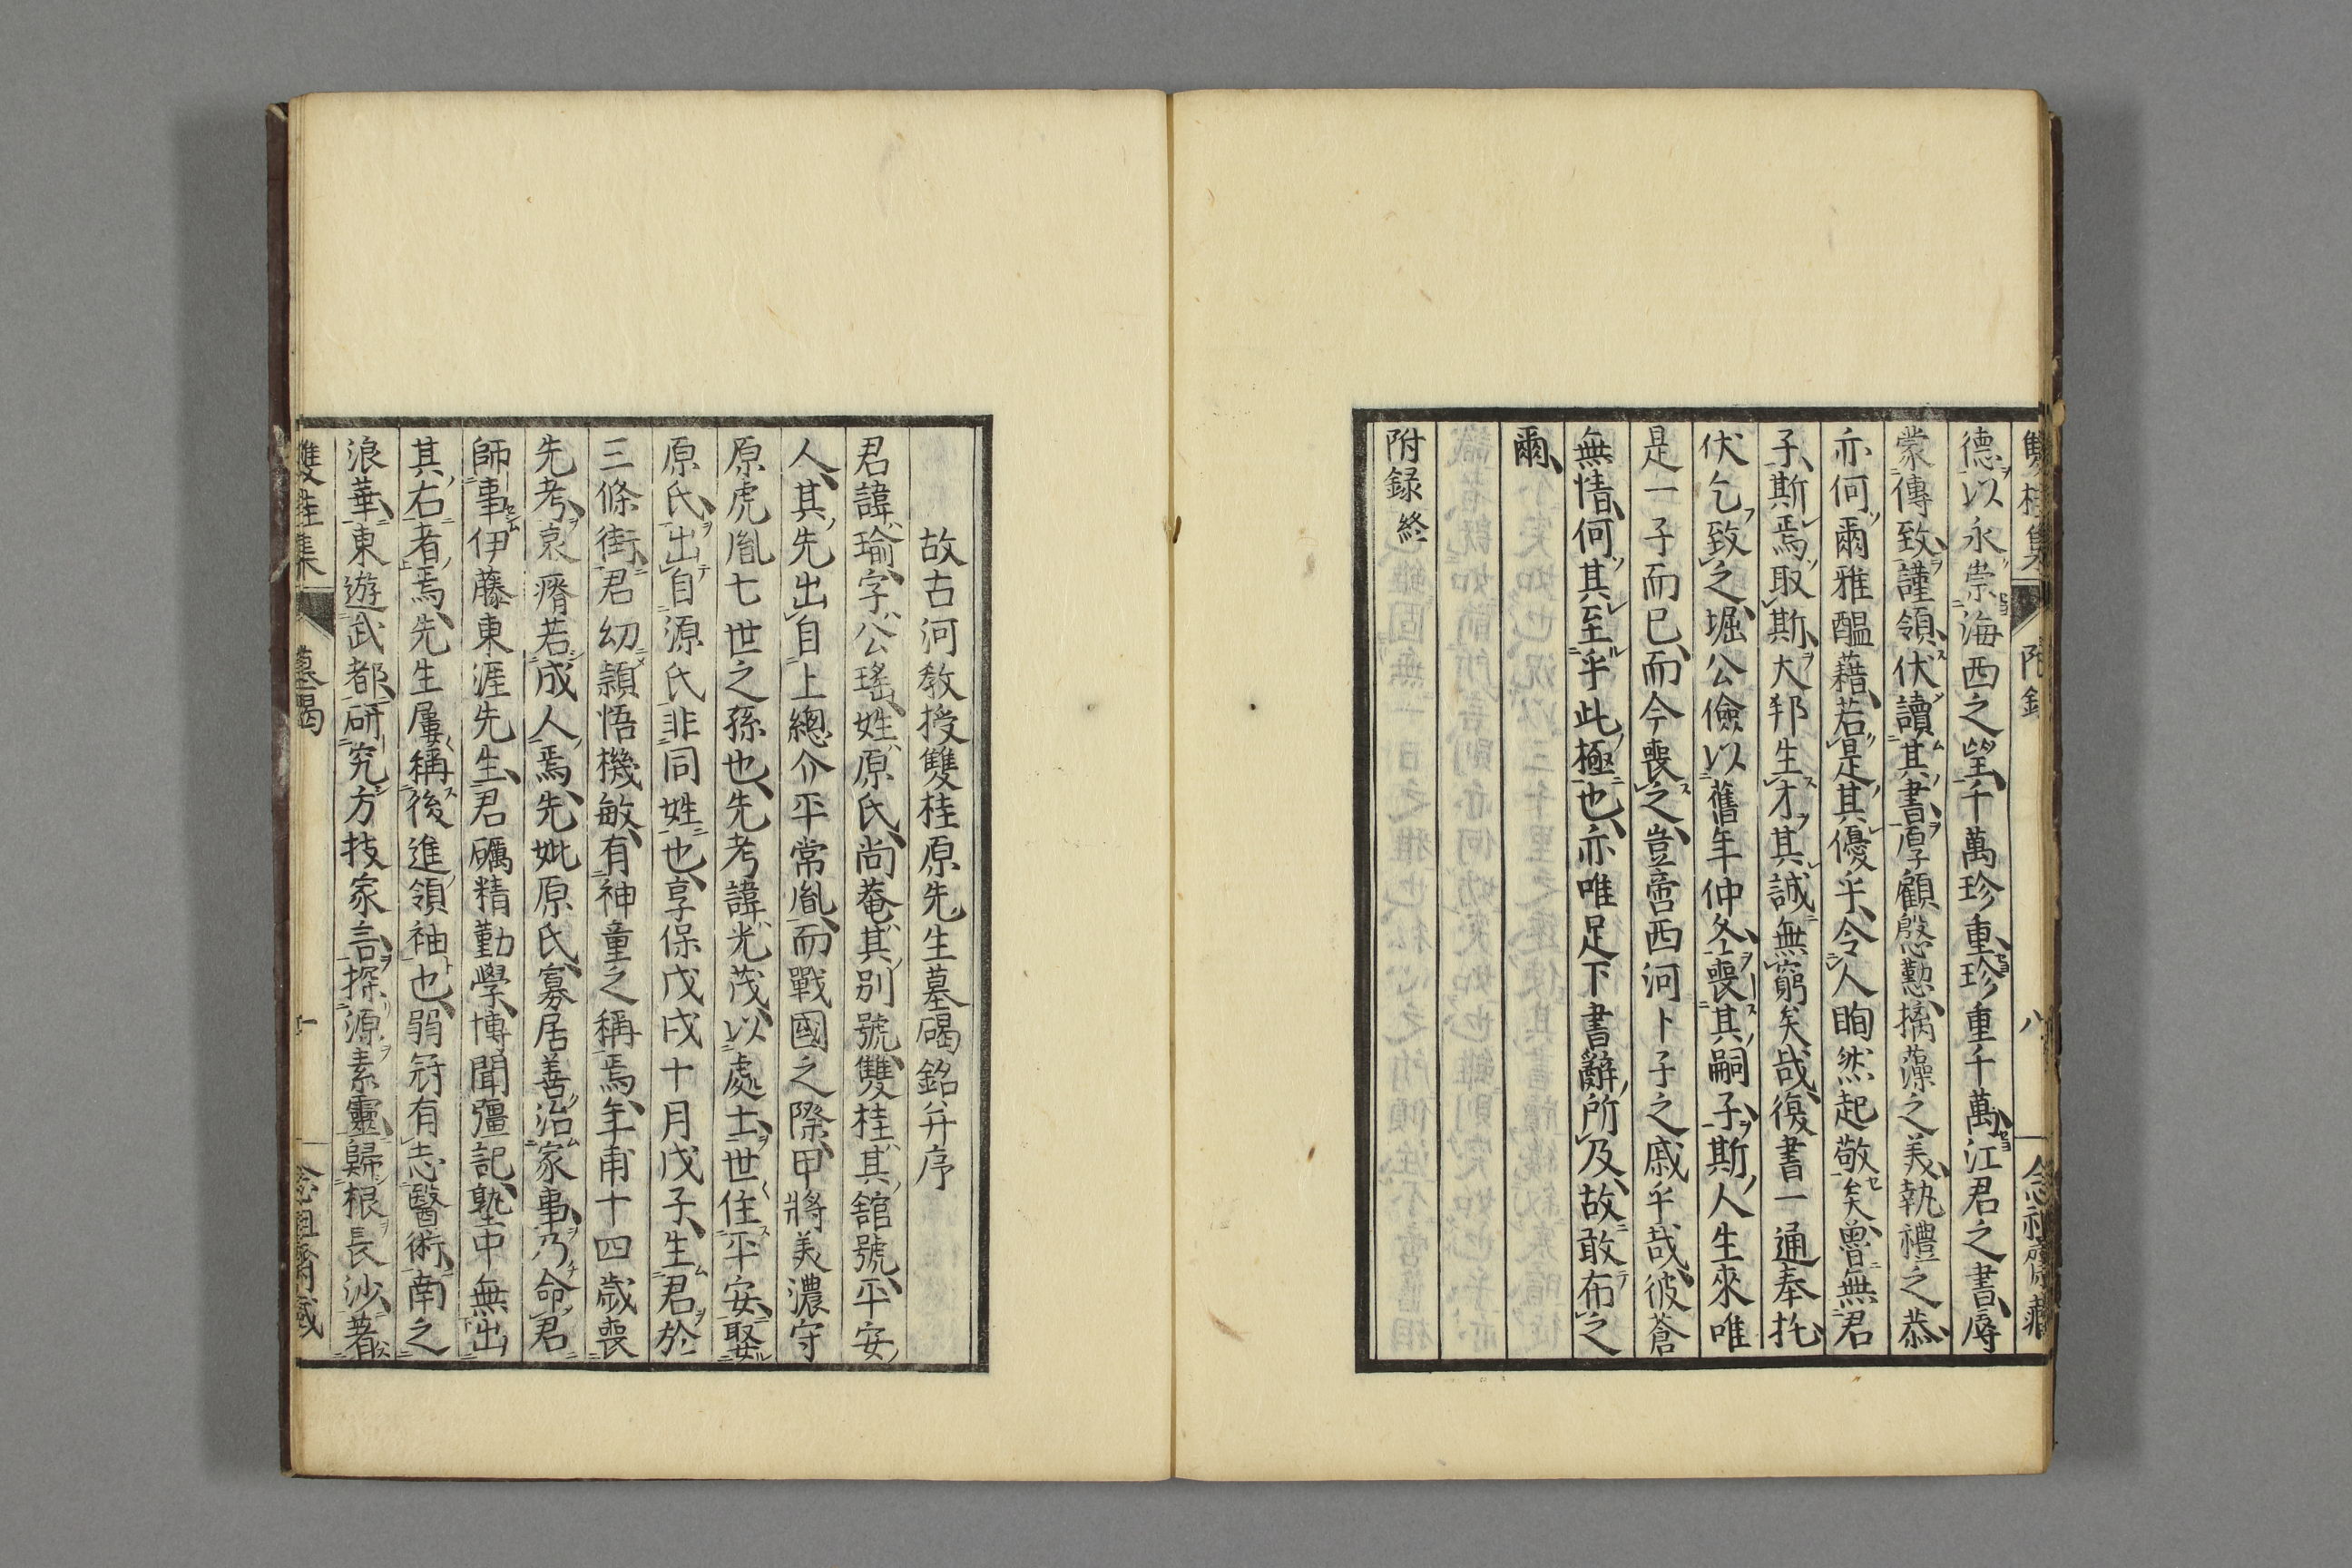 雙桂集 附録 八
德以永崇海西之望千萬珍重珍重千萬江君之書辱
蒙傳致謹領伏讀其書厚顧慇懃摛藻之美執禮之恭
亦何爾雅醞藉若是其優乎令人眴然起敬矣曾無君
子斯焉取斯大邦生才其誠無窮矣哉復書一通奉托
伏乞致之堀公儉以舊年仲冬喪其嗣子斯人生來唯
是一子而已而今喪之豈啻西河卜子之戚乎哉彼蒼
無情何其至乎此極也亦唯足下書辭所及故敢布之
爾
附録終
故古河敎授雙桂原先生墓碣銘并序
君諱瑜字公瑤姓原氏尚菴其別號雙桂其舘號平安
人其先出自上總介平常胤而戰國之際甲將美濃守
原虎胤七世之孫也先考諱光茂以處士世住平安娶
原氏出自源氏非同姓也享保戊戌十月戊子生君於
三條街君幼穎悟機敏有神童之稱焉年甫十四歲喪
先考哀瘠若成人焉先妣原氏寡居善治家事乃命君
師事伊藤東涯先生君礪精勤學博聞彊記塾中無出
其右者焉先生屢稱後進領袖也弱冠有志醫術南之
浪華東遊武都研究方技家言探源素靈歸根長沙著
雙桂集 墓碣 一